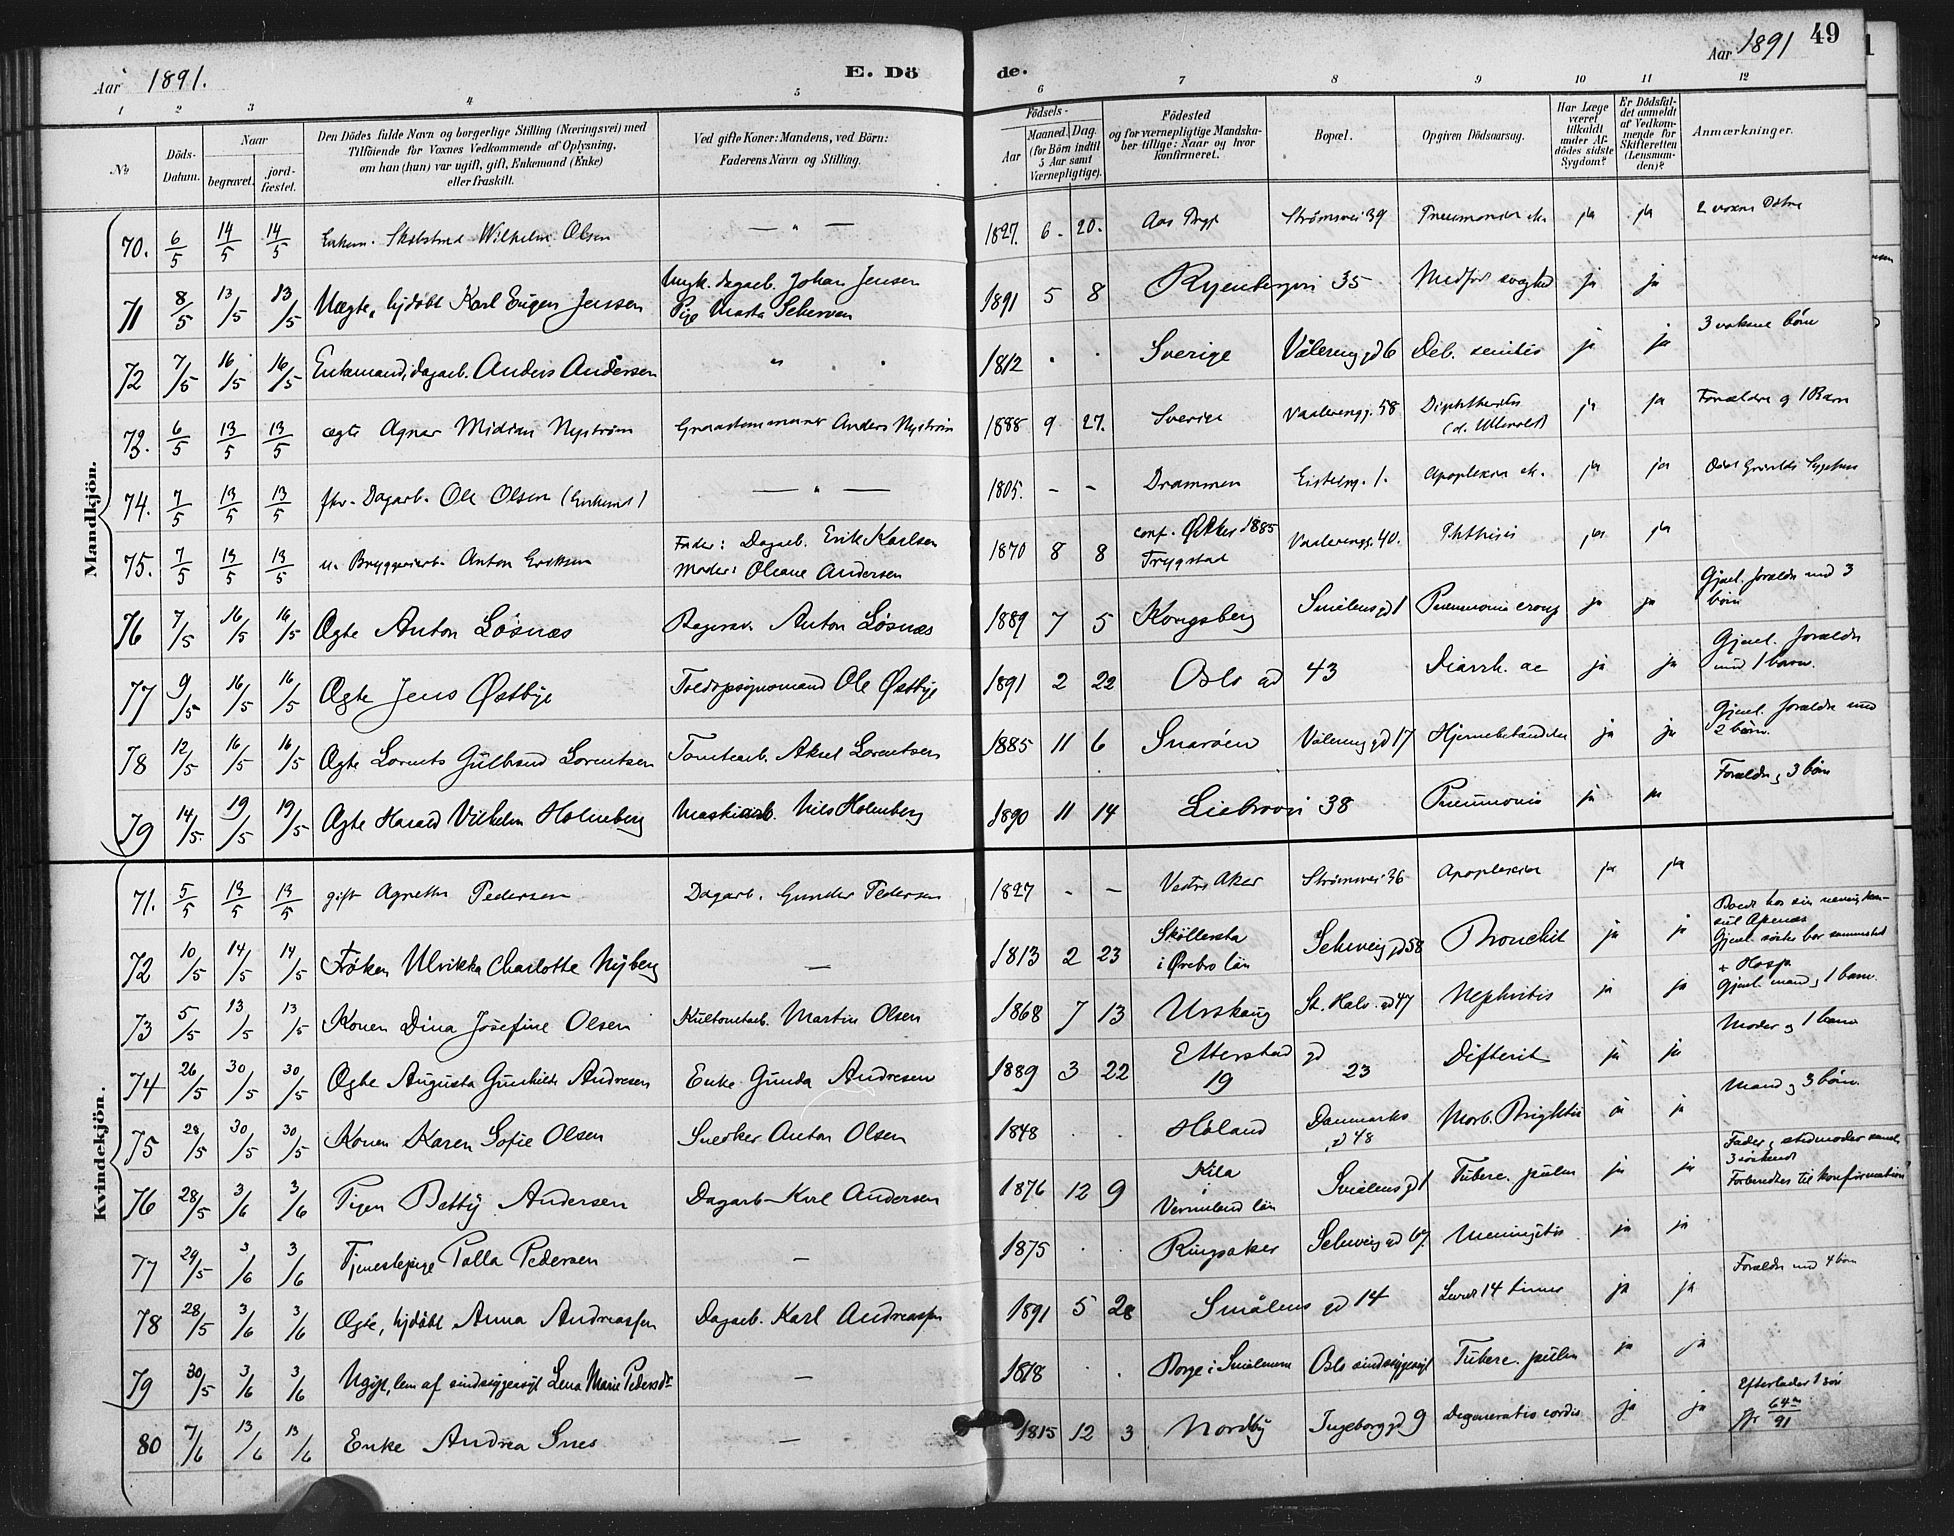 Aar 1891.
E. Döde.
Aar 1891
49
1 2 3 4 5 6 7 8 9 10 11 12
No
Döds-Datum.
Naar
begravet.
jord-fæstet.
Den Dödes fulde Navn og borgerlige Stilling (Næringsvei) med
Tilföiende for Voxnes Vedkommende af Oplysning,
om han (hun) var ugift, gift, Enkemand (Enke)
eller fraskilt.
Ved gifte Koner: Mandens, ved Börn:
Faderens Navn og Stilling.
Födsels-
Aar
Maaned. Dag.
(for Börn indtil
5 Aar samt
Værnepligtige).
Födested
og for værnepligtige Mandska-
ber tillige: Naar og hvor
konfirmeret.
Bopæl.
Opgiven Dödsaarsag.
Har Læge
været
tilkaldt
under Af-
dödes sidste
Sygdom?
Er Dödsfal-
det anmeldt
af Vedkom-
mende for
Skifteretten
(Lensman-
den)?
Anmærkninger.
Mandkjön.
70. 6/5 14/5 14/5 Enkem. Wilhelm Olsen — " — 1827. 6. 20. Aas Strömsvei 39 ja ja 2 voxne
71 8/5 13/5 13/5 Uægte, hjdöbt Karl Eugen Jensen Ungk. dagarb. Johan Jensen
Pige Marta 1891 5 8 Ryenbergvn 35 Medfød svaghed ja ja
72 7/5 16/5 16/5 Enkemand, dagarb. Anders Andersen " 1812 . . Sverige Vålereng gd 6 Deb. senilis ja ja 3 voksne börn
73. 6/5 13/5 13/5 ægte Agnar Midian Nyström Anders Nyström 1888 9 27. Sverige Vaalerengg. 58 Diphtheritis
(d. Ullevold) ja ja Forældre og 1 Barn
74. 7/5 13/5 13/5 fhv. Dagarb. Ole Olsen (Enkemd) — " — 1805. - - Drammen 1. Apoplexia ja ja
75. 7/5 13/5 13/5 u. Bryggeriarb. Anton Eriksen Fader: Dagarb. Erik Karlsen
Moder: Oleane Andersen 1870 8 8 conf. 1885
Trygstad Vaalerengg. 40. Phthisis ja ja
76 7/5 16/5 16/5 Ægte Anton Lösnæs Bagersv. Anton Lösnæs 1889 7 5 Kongsberg Smålensgd 1 Pneumonia croup ja ja Gjenl. forældre med 3
börn
77 9/5 16/5 16/5 Ægte Jens Østbye Toldopsynsmand Ole Østbye 1891 2 22 Oslo gd 43 Diarrh. ac ja ja Gjenl. forældre
med 1 barn.
78 12/5 16/5 16/5 Ægte Lorents Gulbrand Lorentsen Tomtearb. Aksel Lorentsen 1885 11 6 Snaröen Vålereng gd 17 Hjernebetændelse ja ja Gjenl. forældre med
2 börn.
79 14/5. 19/5 19/5 Ægte Harald Vilhelm Holmberg Maskinarb. Nils Holmberg 1890 11 14 Liebrovn 38 Pneumonia ja ja Forældre, 3 börn
Kvindekjön.
71. 5/5 13/5 13/5 gift Agnethe Pedersen Dagarb. Gunder Pedersen 1827 - — Vestre Aker Strömsvei 36 Apoplexia ja ja
72 10/5 14/5 14/5 Fröken Ulrikka Charlotte Nyberg — 1813 2 23 Sköllersta
i Ørebro län Schweig gd 58 Bronchit ja ja
73 5/5 13/5 13/5 Konen Dina Josefine Olsen Martin Olsen 1868 7 13 Urskoug St. Halv. gd 47 Nephritis ja ja + Hosp.
Gjenl. mand, 1 barn.
74 26/5 30/5 30/5 Ægte Augusta Gunhilde Andresen Enke Gunda Andresen 1889 3 22 Etterstad gd
19 23 Difterit ja ja Moder og 1 barn
75 28/5 30/5 30/5 Konen Karen Sofie Olsen Snedker Anton Olsen 1848 . . Höland Danmarks
gd 48 Morb. Brightii ja ja Mand og 3 börn.
76 28/5 3/6 3/6 Pigen Betty Andersen Dagarb. Karl Andersen 1876 12 9 Kila
i
Vermland län Smålensgd 1 Tuberc. pulm ja ja Fader, stedmoder samt
3 söskende
Forberedtes til konfirmation
77 29/5 3/6 3/6 Tjenestepige Palla Pedersen — 1875 . . Ringsaker Schweig gd 67. Meningitis ja ja
78 28/5 3/6 3/6 Ægte, hjdöbt Anna Andreassen Dagarb. Karl Andreassen 1891 5 28 Smålens gd 14 Levet 14 timer ja ja Forældre med 4 börn
79 30/5 3/6 3/6 Ugift, lem af sindssygeasyl Lena Marie Pedersdr — 1818 . . Borge i Smålenene Oslo sindssygeasyl Tuberc. pulm ja ja
80 7/6 13/6 13/6 Enke Andrea Snes — 1815 12 3 Nordby Ingeborg gd 9 Degeneratio cordis ja ja Efterlader 1 sön
64/91